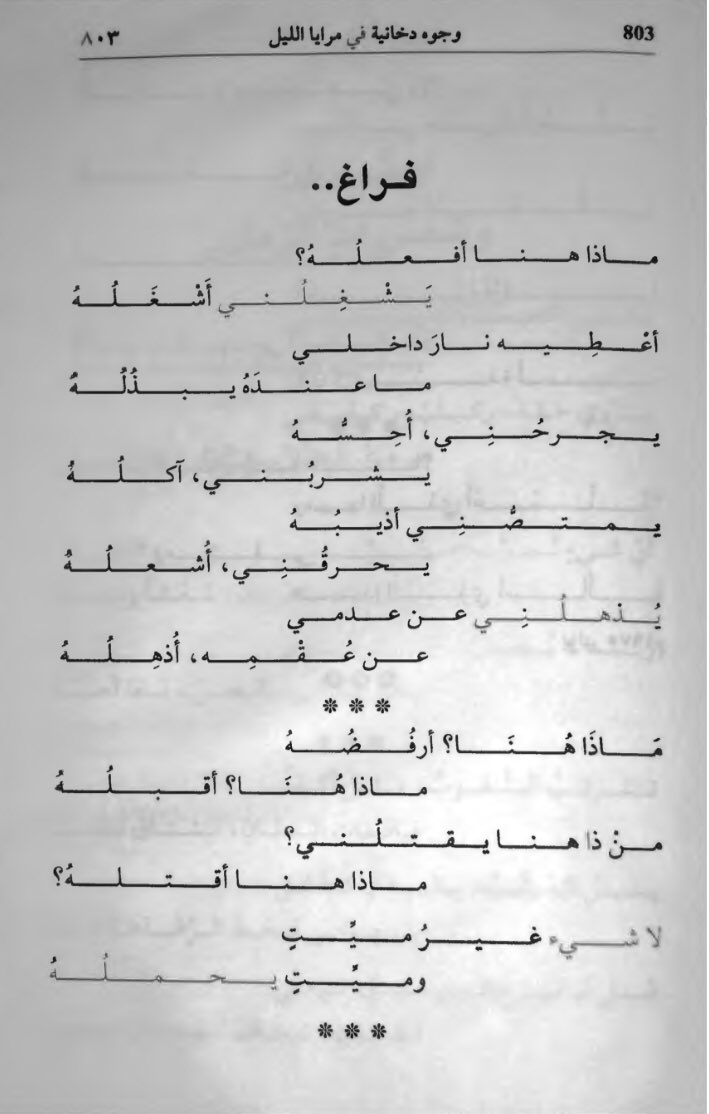 803 وجوه دخانية في مرايا الليل ٨٠٣
فراغ..
ماذا هنا أفعلُهُ؟
يَشْغِلُني أَشْغَلُهُ
أعْطِيه نارَ داخلي
ما عندَهُ يبذُلُهُ
يجرحُنِي، أُحِسُّهُ
يشربُني، آكلُهُ
يمتصُّنِي أذيبُهُ
يحرقُنِي، أُشعلُهُ
يُذهلُنِي عن عدمي
عن عُقْمِه، أُذهِلُهُ
* * *
مَاذَا هُنَا؟ أرفُضُهُ
ماذا هُنَا؟ أقبلُهُ
منْ ذا هنا يقتلُني؟
ماذا هنا أقتلهُ؟
لا شيء غيرُ ميِّتٍ
وميِّتٍ يحملُهُ
* * *